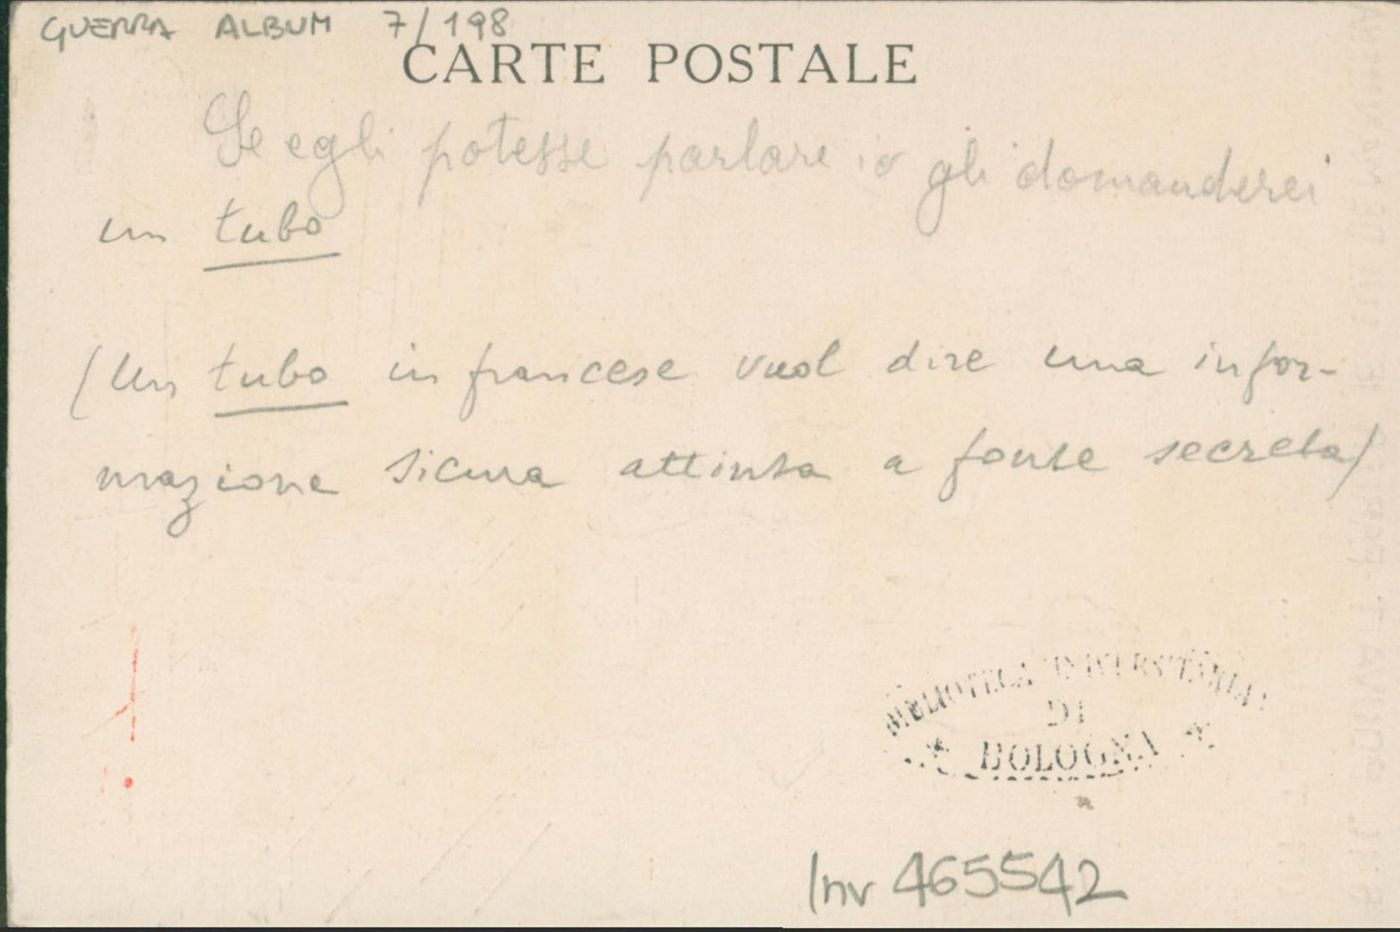 GUERRA ALBUM 7/198
CARTE POSTALE
Se egli potesse parlare io gli domanderei
un tubo
(Un tubo in francese vuol dire una infor-
mazione sicura attinta a fonte secreta)
BIBLIOTECA UNIVERSITARIA
DI
BOLOGNA
Inv 465542